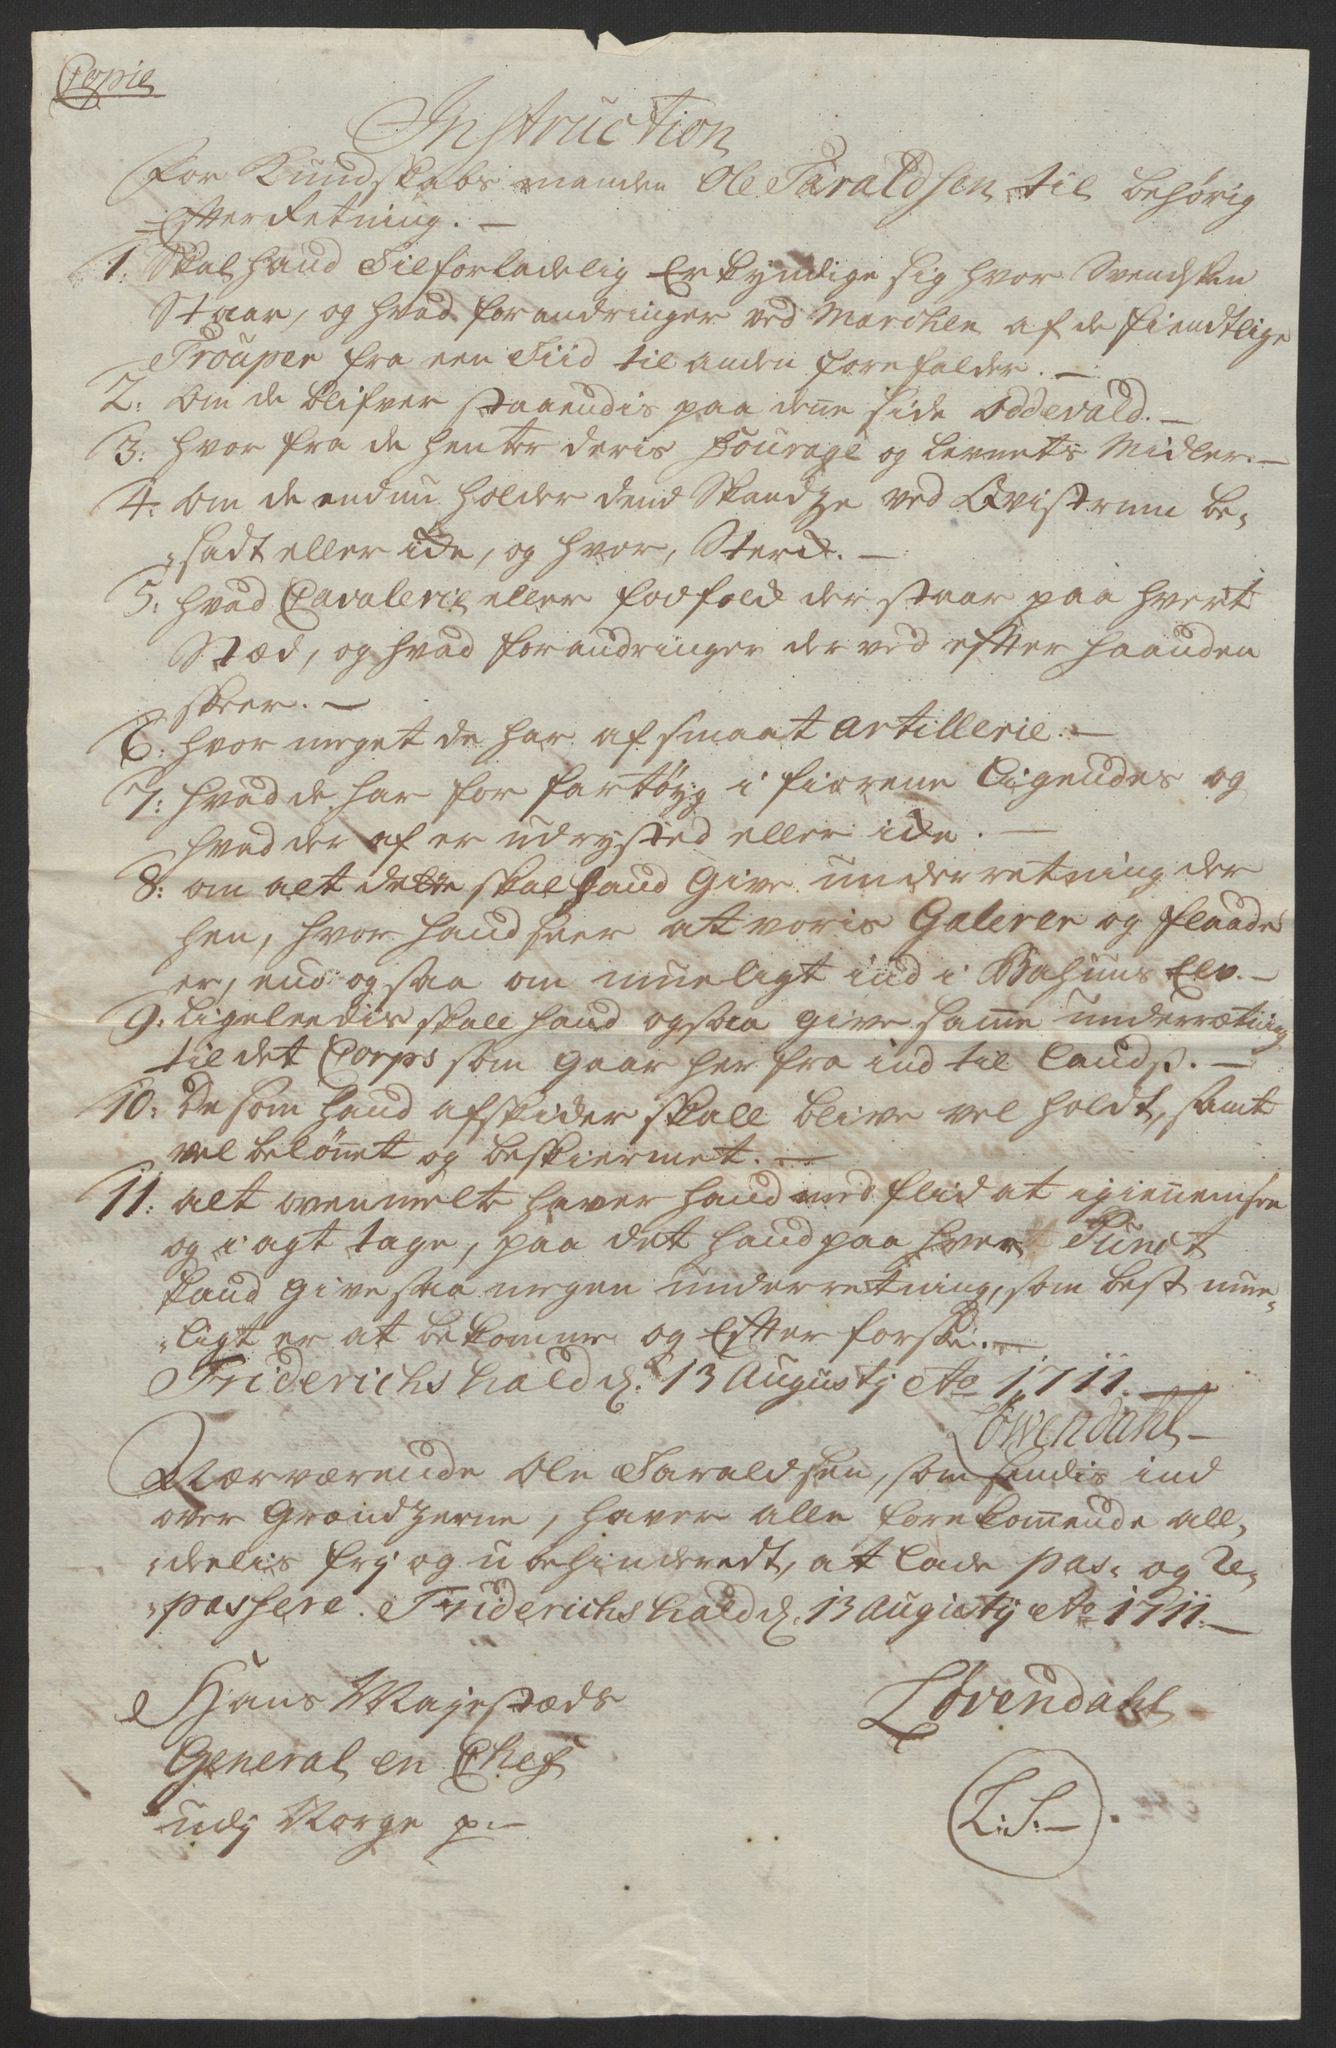 Copie
Instruction
For Kundskabs manden Ole Taraldsen til behørig
Efterretning. —
1. Skal hand Tilforladelig Erkyndige sig hvor Svendsken
Staar, og hvad forandringer ved Marchen af de fiendtlige
Trouper fra een Tiid til anden forefalder. —
2. Om de blifver staaendis paa dene side Oddevald. —
3. hvor fra de henter deris Fourage og Levnets Midler. —
4. Om de endnu holder dend Skandze ved Qvistrum be-
-sadt eller icke, og hvor, Sterck. —
5. hvad Cavalerie eller fodfolck der staar paa hvert
Stæd, og hvad forandringer der ved efter haanden
skeer. —
6. hvor meget de har af smaat Artillerie. —
7. hvad de har for fartøyg i fiorene ligendes og
hvad der af er udrysted eller icke. —
8. om alt dette skal hand Give underretning der
hen, hvor hand seer at voris Galerer og flaade
er, end og saa om mueligt ind i Bahuus Elv. —
9. Ligeleedis skall hand ogsaa give same underrætning
til det Corps som gaar her fra ind til lands. —
10. De som hand afskicker skall blive vel holdt, samt
vel belønnet og beskiermet. —
11. alt ovenmelte haver hand med flid at igiennemsee
og i agt tage, paa det hand paa hver Punct
kand give saa megen underretning, som best mue-
-ligt er at bekomme og Efterforske. —
Friderichshald d. 13 Augustij Ao 1711. —
Löwendahl —
Nærværende Ole Taraldsen, som sendis ind
over Grændzerne, haver alle forekommende all-
-deelis frj og ubehinderedt, at lade pas- og Re-
-passere. Friderichshald d. 13 Augustij Ao 1711. —
Hans Majestæds
General en Chef
udj Norge p. —
Løvendahl
L. S. —